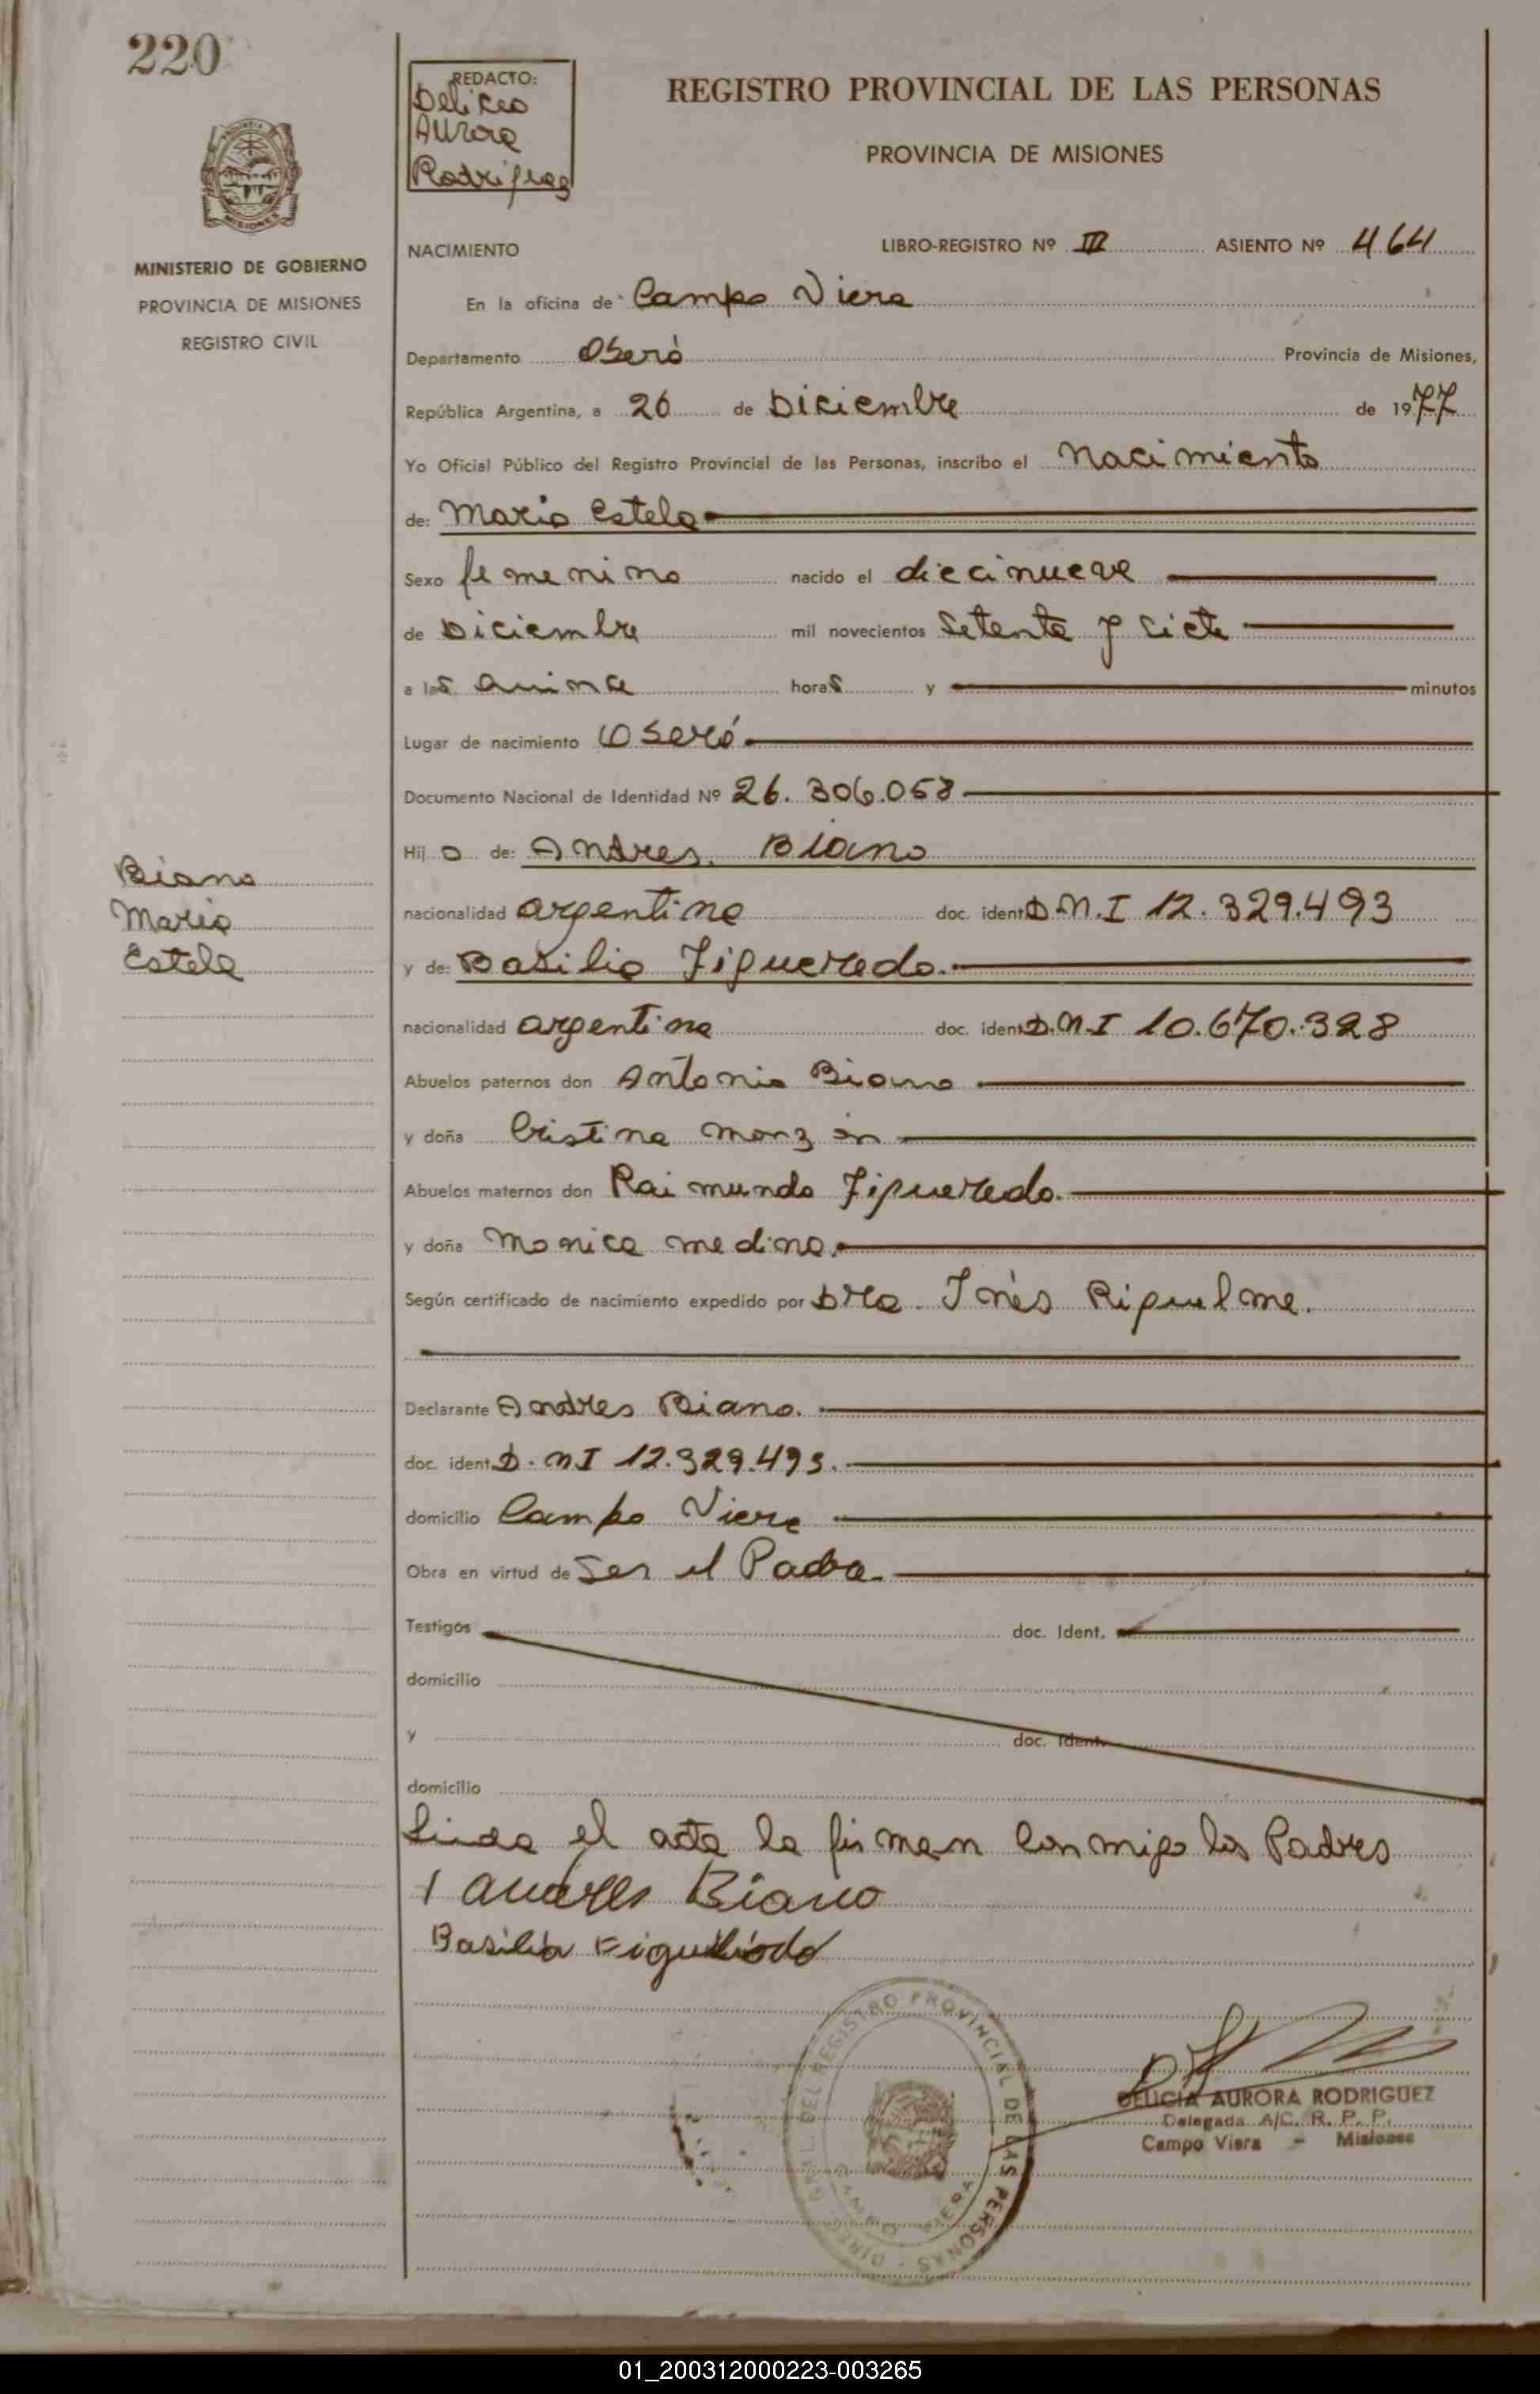 220
REDACTO:
Delicia
Aurora
Rodriguez
REGISTRO PROVINCIAL DE LAS PERSONAS
PROVINCIA DE MISIONES
MISIONES
MINISTERIO DE GOBIERNO
PROVINCIA DE MISIONES
REGISTRO CIVIL
NACIMIENTO LIBRO-REGISTRO Nº III ASIENTO Nº 464
En la oficina de Campo Viera
Departamento Oberá Provincia de Misiones,
República Argentina, a 26 de Diciembre de 1977
Yo Oficial Público del Registro Provincial de las Personas, inscribo el Nacimiento
de: Maria Estela
Sexo femenino nacido el diecinueve
de Diciembre mil novecientos Setenta y siete
a las quince horas y minutos
Lugar de nacimiento Oberá
Documento Nacional de Identidad Nº 26.306.058
Hij a de: Andres Biano
nacionalidad argentina doc. ident D.N.I 12.329.493
y de: Basilia Figueredo.
nacionalidad argentina doc. ident D.N.I 10.670.328
Abuelos paternos don Antonio Biano
y doña Cristina Monzón
Abuelos maternos don Raimundo Figueredo.
y doña Monica Medina.
Según certificado de nacimiento expedido por Dra. Inès Riquelme.
Declarante Andres Biano.
doc. ident D.NI 12.329.493.
domicilio Campo Viera
Obra en virtud de Ser el Padre
Testigos doc. Ident.
domicilio
y doc. Ident.
domicilio
Biano
Maria
Estela
Leida el acta la firman conmigo los Padres
Andres Biano
Basilia Figueredo
DIREC. GRAL. DEL REGISTRO PROVINCIAL DE LAS PERSONAS
CAMPO VIERA
DELICIA AURORA RODRIGUEZ
Delegada A/C. R. P. P.
Campo Viera - Misiones
01_200312000223-003265